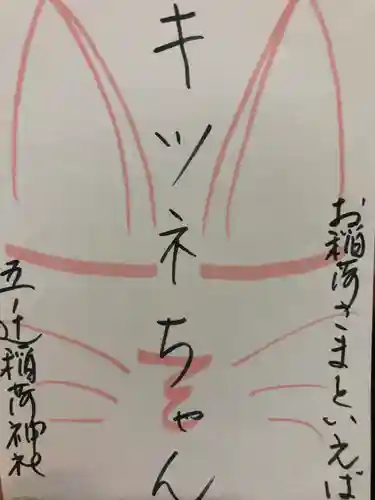 お稲荷さまといえば
キツネちゃん
五ノ辻稲荷神社